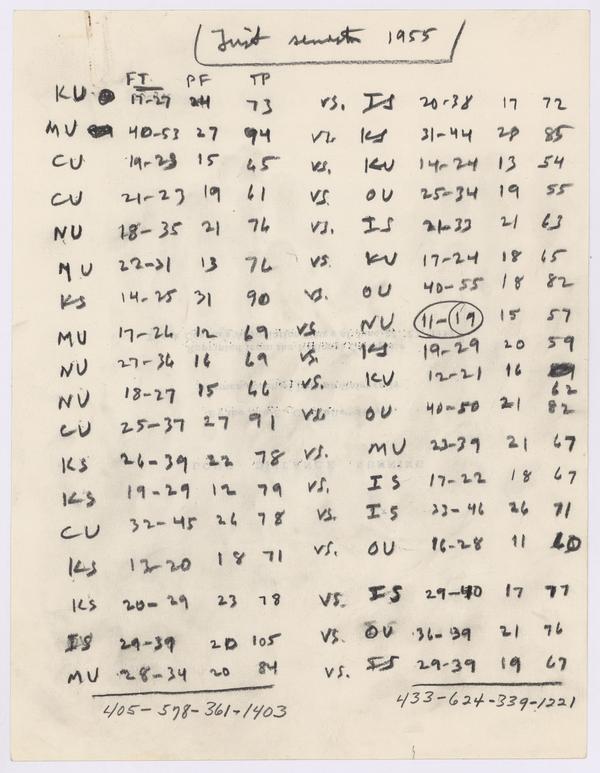 First semester 1955
FT. PF TP
KU 17-27 24 73 vs. IS 20-38 17 72
MU 40-53 27 94 vs. KS 31-44 28 85
CU 19-23 15 65 vs. KU 14-24 13 54
CU 21-23 19 61 vs OU 25-34 19 55
NU 18-35 21 76 vs. IS 21-33 21 63
MU 22-31 13 76 vs. KU 17-24 18 65
KS 14-25 31 90 vs. OU 40-55 18 82
MU 17-26 12 69 vs NU 11-19 15 57
NU 27-36 16 69 vs. KS 19-29 20 59
NU 18-27 15 66 vs. KU 12-21 16 62
CU 25-37 27 91 vs. OU 40-50 21 82
KS 26-39 22 78 vs. MU 23-39 21 67
KS 19-29 12 79 vs. IS 17-22 18 67
CU 32-45 26 78 vs. IS 33-46 26 71
KS 13-20 18 71 vs. OU 16-28 11 60
KS 20-29 23 78 vs. IS 29-40 17 77
IS 29-39 20 105 vs. OU 36-39 21 76
MU 28-34 20 84 vs. IS 29-39 19 67
405-578-361-1403 433-624-339-1221